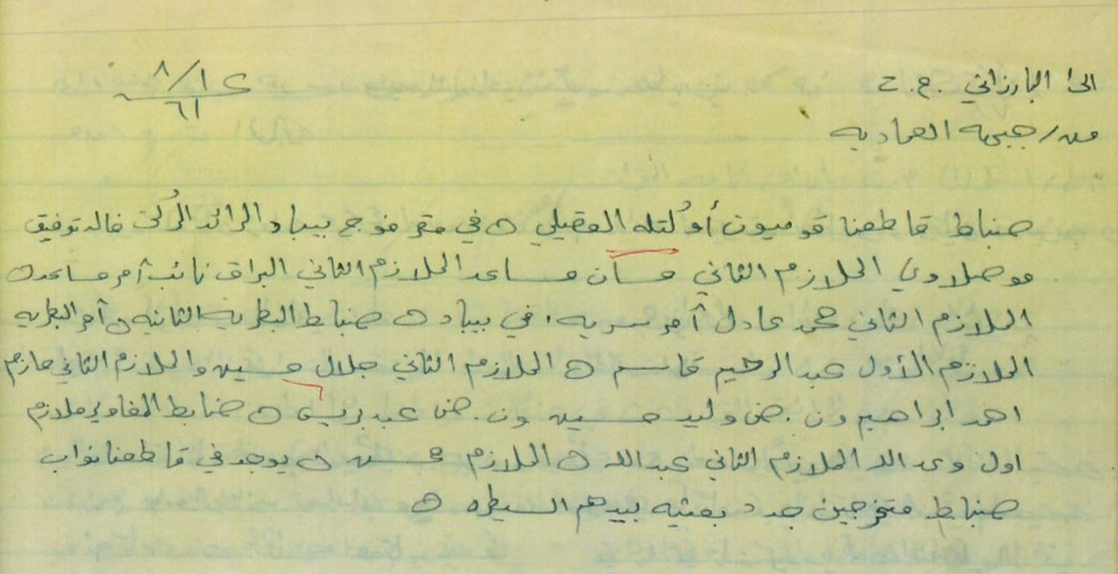 الى/ البارزاني . ح . ت
٨/١٢
٦١
من/ جبهه العماديه
ضباط قاطعنا قوميون أو كتله العقيلي ن في مقر فوج بيباد الرائد الركن خالد توفيق
موصلاوي الملازم الثاني حسان مساعد الملازم الثاني البراق نائب آمر مساعد ن
الملازم الثاني محمد عادل آمر سريه ١ في بيباد ن ضباط البطريه الثانيه ن آمر البطريه
الملازم الأول عبد الرحيم قاسم ن الملازم الثاني جلال حسين والملازم الثاني حازم
احمد ابراهيم ون . ض وليد حسين ون . ض عبد ن ضابط المغاوير ملازم
اول الملازم الثاني عبدالله ن الملازم حسن ن يوجد في قاطعنا نواب
ضباط متخرجين جدد بعثيه بيدهم السيطره ن